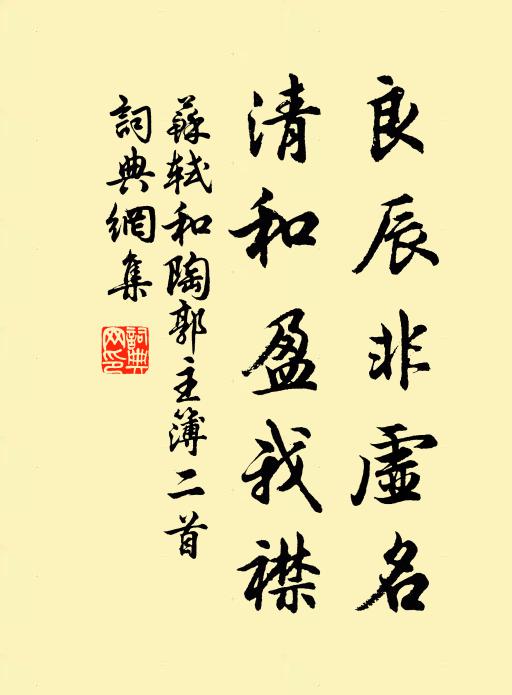 良辰非虛名
清和盈我襟
蘇軾和陶郭主簿二首
詞典網集
詞典網印